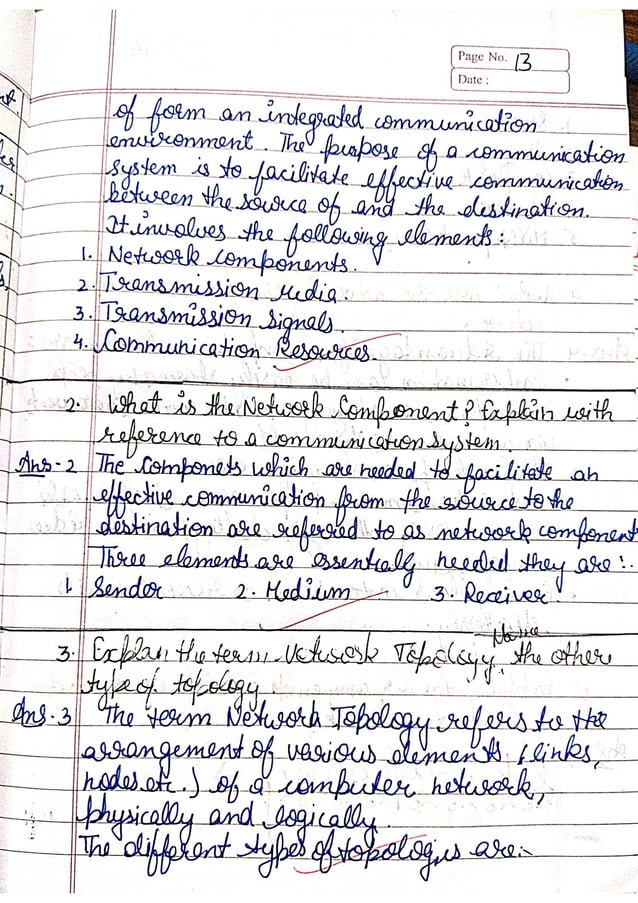 Page No. 13
Date :
of form an integrated communication
environment. The purpose of a communication
system is to facilitate effective communication
between the source of and the destination.
It involves the following elements:
1. Network components.
2. Transmission Media.
3. Transmission Signals.
4. Communication Resources.
2. What is the Network Component? Explain with
reference to a communication system.
Ans-2 The Componets which are needed to facilitate an
effective communication from the source to the
destination are referred to as network component
Three elements are essentially needed they are :-
1. Sendor 2. Medium 3. Receiver.
Name
3. Explan the term Network Topology. the other
type of topology.
Ans.3 The term Network Topology refers to the
arrangement of various elements (links,
nodes.etc.) of a computer network,
physically and logically.
The different types of topologies are:-